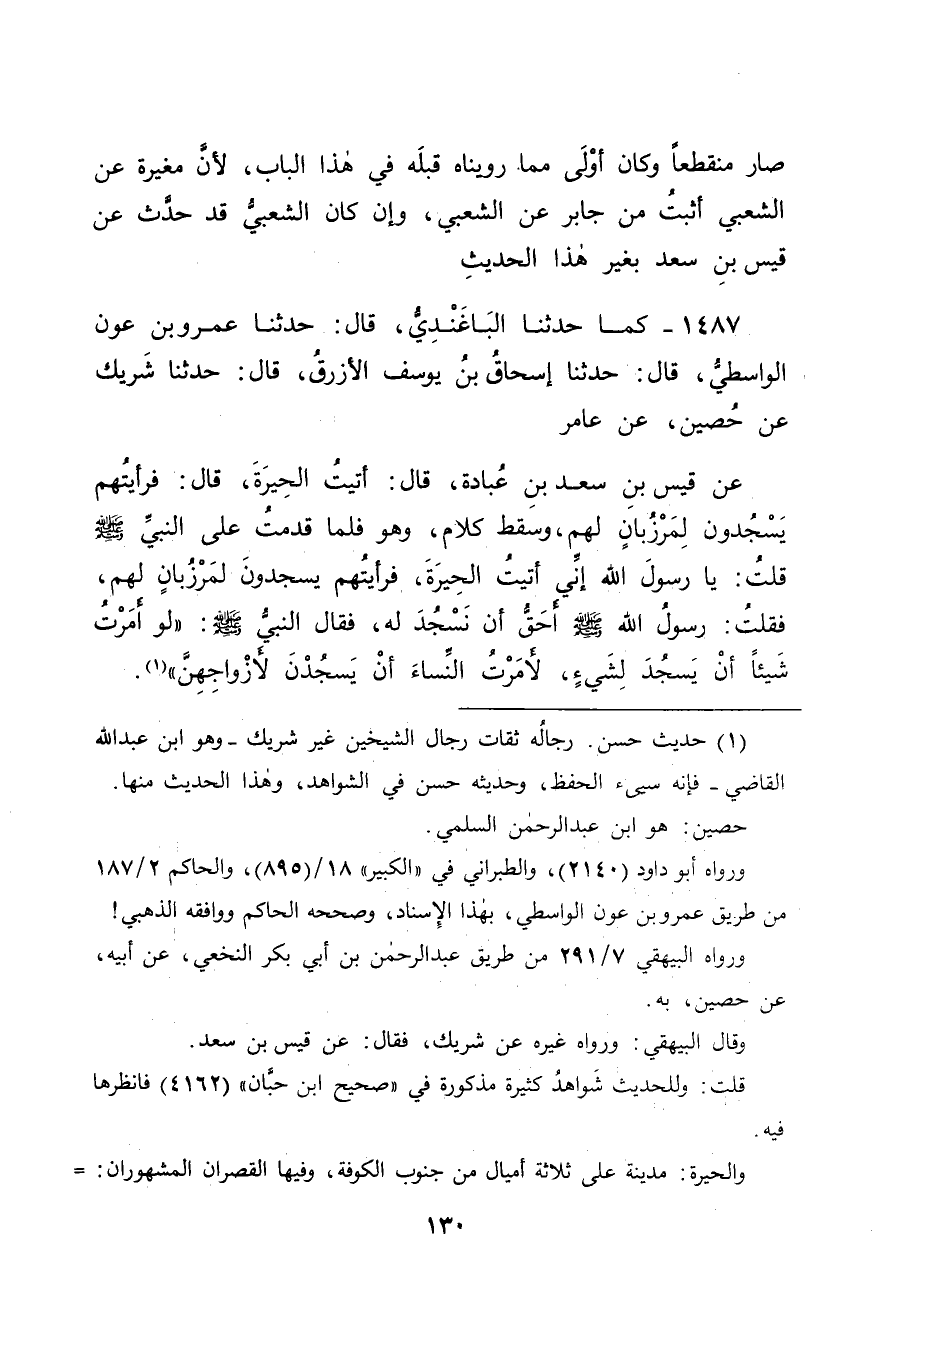 صار منقطعاً وكان أوْلَى مما رويناه قبلَه في هٰذا الباب، لأنَّ مغيرة عن
الشعبي أثبتُ من جابر عن الشعبي، وإن كان الشعبيُّ قد حدَّث عن
قيس بنِ سعد بغير هٰذا الحديثِ
١٤٨٧ - كمـا حدثنـا البَـاغَنْـدِيُّ، قال: حدثنـا عمـرو بن عون
الواسطيُّ، قال: حدثنا إسحاقُ بنُ يوسف الأزرقُ، قال: حدثنا شَريك
عن حُصين، عن عامر
عن قيس بنِ سعـد بنِ عُبادة، قال: أتيتُ الحِيرَةَ، قال: فرأيتُهم
يَسْجُدون لِمَرْزُبانٍ لهم، وسقط كلام، وهو فلما قدمتُ على النبيِّ ﷺ
قلتُ: يا رسولَ الله إنِّي أتيتُ الحِيرَةَ، فرأيتُهم يسجدونَ لمَرْزُبانٍ لهم،
فقلتُ: رسولُ الله ﷺ أَحَقُّ أن نَسْجُدَ له، فقال النبيُّ ﷺ: «لو أَمَرْتُ
شَيئاً أنْ يَسجُدَ لِشَيءٍ، لأمَرْتُ النِّساءَ أنْ يَسجُدْنَ لأزْواجِهِنَّ»(١).
(١) حديث حسن. رجالُه ثقات رجال الشيخين غير شريك ـ وهو ابن عبدالله
القاضي ـ فإنه سيىء الحفظ، وحديثه حسن في الشواهد، وهٰذا الحديث منها.
حصين: هو ابن عبدالرحمٰن السلمي.
ورواه أبو داود (٢١٤٠)، والطبراني في «الكبير» ١٨/(٨٩٥)، والحاكم ١٨٧/٢
من طريق عمرو بن عون الواسطي، بهٰذا الإِسناد، وصححه الحاكم ووافقه الذهبي!
ورواه البيهقي ٢٩١/٧ من طريق عبدالرحمٰن بن أبي بكر النخعي، عن أبيه،
عن حصين، به.
وقال البيهقي: ورواه غيره عن شريك، فقال: عن قيس بن سعد.
قلت: وللحديث شَواهدُ كثيرة مذكورة في «صحيح ابن حبَّان» (٤١٦٢) فانظرها
فيه.
والحيرة: مدينة على ثلاثة أميال من جنوب الكوفة، وفيها القصران المشهوران: =
١٣٠